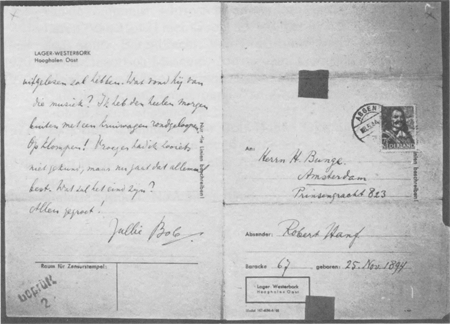 LAGER-WESTERBORK
Hooghalen Oost
zal hebben. Wat vond hij van
die musiek? Ik heb den heelen morgen
buiten met een kruiwagen rondgeloopen
Op klompen! Vroeger had ik zooiets
niet gekund, maar nu gaat dat allemaal
best. Wat zal het eind zijn?
Allen gegroet!
Jullie Bob
Nur die Linien beschreiben!
Raum für Zensurstempel:
Geprüft
2
ASSEN
NEDERLAND
An:
Herrn H. Bunge.
Amsterdam
Prinsengracht 823
Linien beschreiben!
Absender: Robert Hanf
Baracke 67 geboren: 25. Nov. 1894
Lager Westerbork
Hooghalen Oost